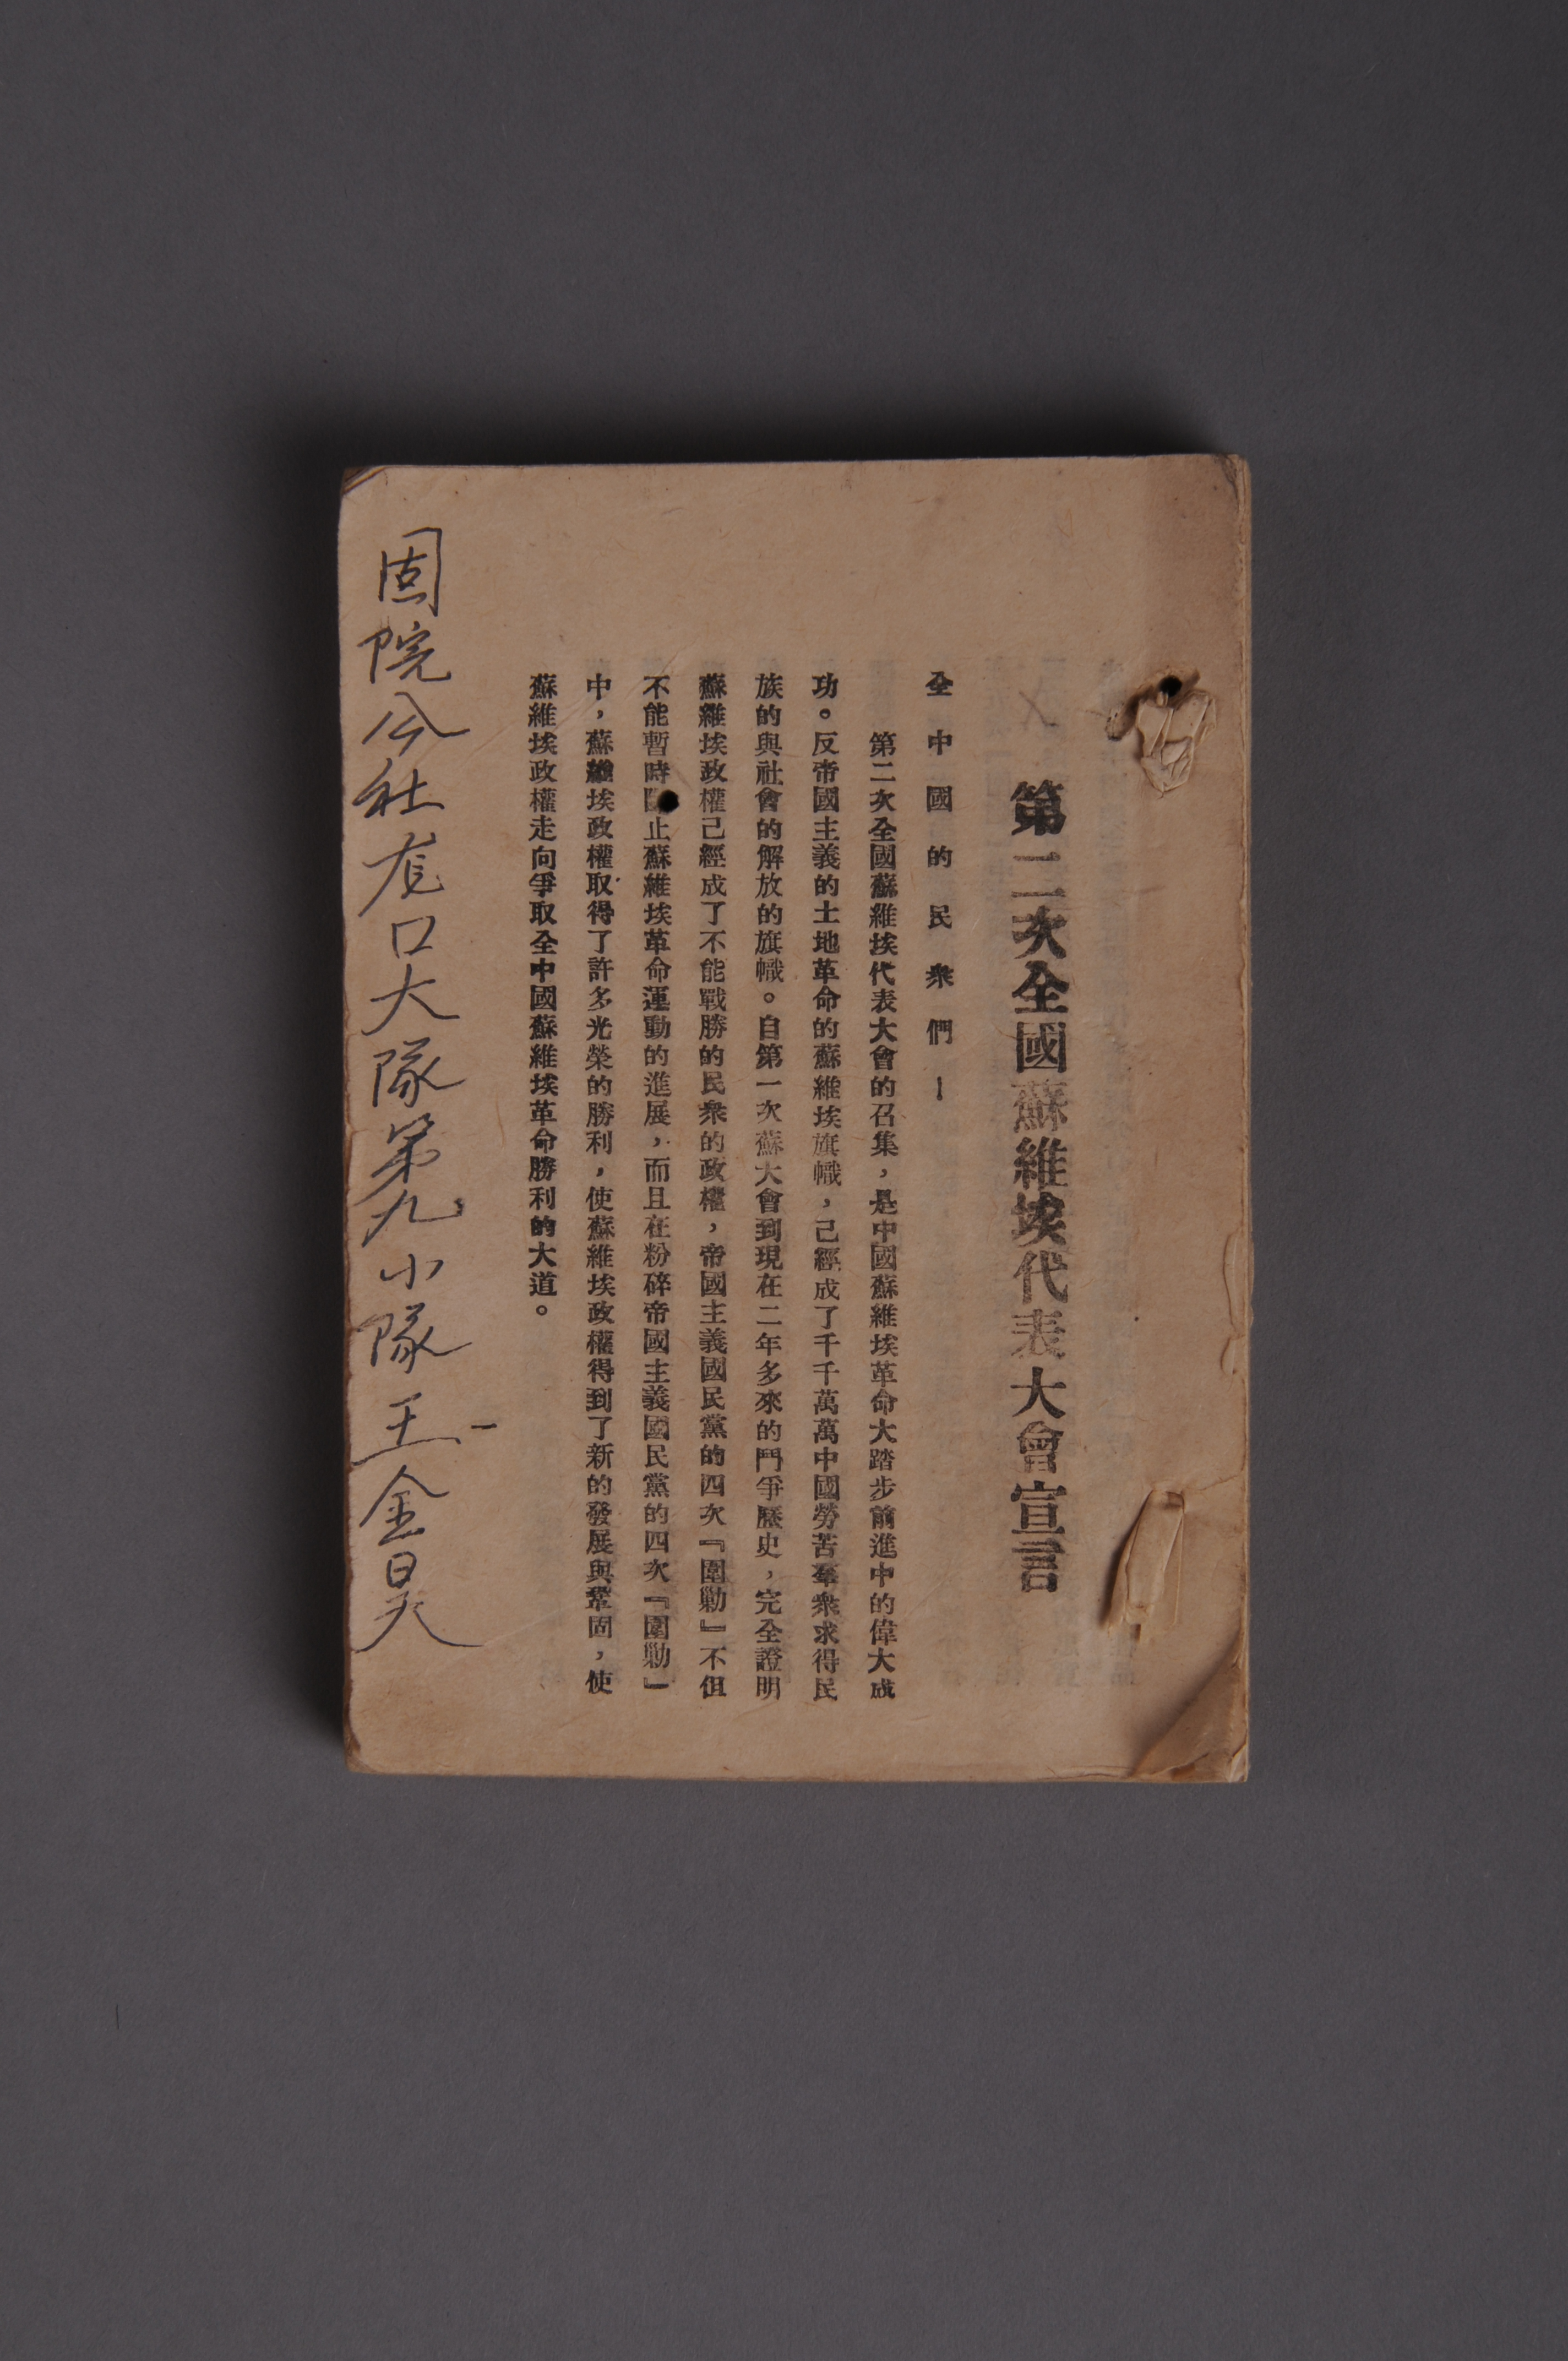 第二次全國蘇維埃代表大會宣言
全中國的民衆們！
第二次全國蘇維埃代表大會的召集，是中國蘇維埃革命大踏步前進中的偉大成
功。反帝國主義的土地革命的蘇維埃旗幟，己經成了千千萬萬中國勞苦羣衆求得民
族的與社會的解放的旗幟。自第一次蘇大會到現在二年多來的鬥爭歷史，完全證明
蘇維埃政權己經成了不能戰勝的民衆的政權，帝國主義國民黨的四次『圍勦』不但
不能暫時止蘇維埃革命運動的進展，而且在粉碎帝國主義國民黨的四次『圍勦』
中，蘇維埃政權取得了許多光榮的勝利，使蘇維埃政權得到了新的發展與鞏固，使
蘇維埃政權走向爭取全中國蘇維埃革命勝利的大道。
固院公社口大隊第九小隊王金昊